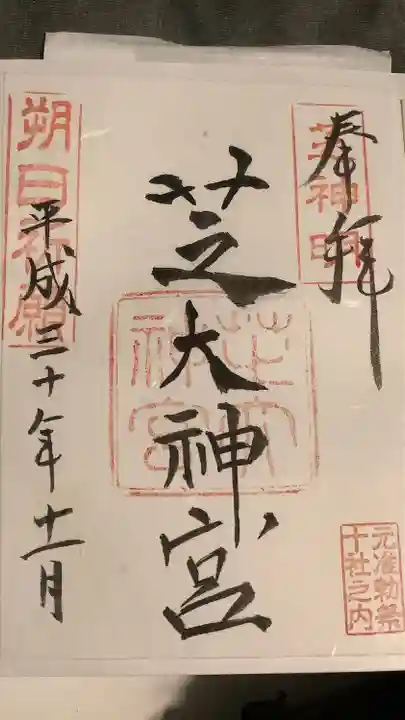 奉拝
芝神明
芝大神宮
芝大神宮
元准勅祭
十社之内
朔日祈願
平成三十年十一月